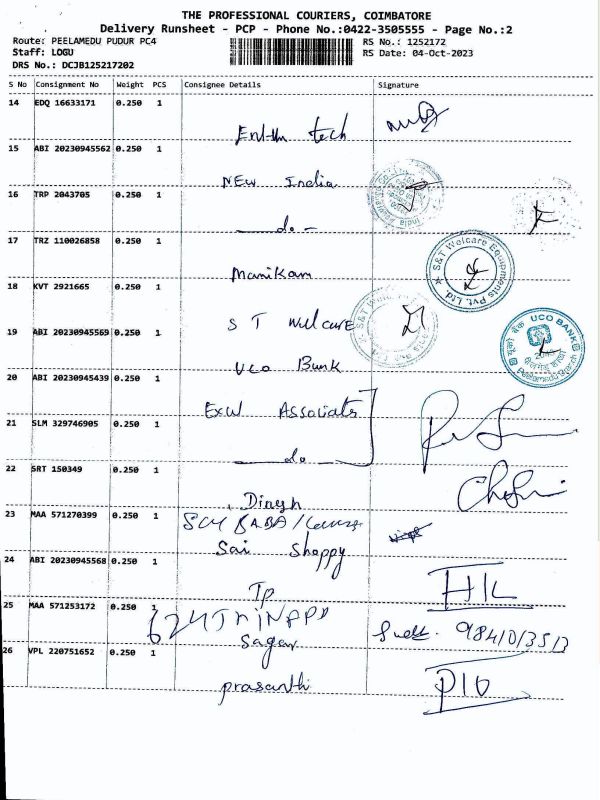 THE PROFESSIONAL COURIERS, COIMBATORE
Delivery Runsheet - PCP - Phone No.:0422-3505555 - Page No.:2
Route: PEELAMEDU PUDUR PC4 RS No.: 1252172
Staff: LOGU RS Date: 04-Oct-2023
DRS No.: DCJB125217202
S No Consignment No Weight PCS Consignee Details Signature
14 EDQ 16633171 0.250 1
tech
15 ABI 20230945562 0.250 1
New India
16 TRP 2043705 0.250 1
- do -
17 TRZ 110026858 0.250 1
Manikam
S&T Welcare Equipments Pvt. Ltd.
18 KVT 2921665 0.250 1
S T Welcare
19 ABI 20230945569 0.250 1
UCO Bank
UCO BANK
Peelamedu Branch
20 ABI 20230945439 0.250 1
Exw Associates
21 SLM 329746905 0.250 1
do
22 SRT 150349 0.250 1
Dinesh
23 MAA 571270399 0.250 1
Sai Shoppy
24 ABI 20230945568 0.250 1
Tp
H/L
25 MAA 571253172 0.250 1
Sagar
26 VPL 220751652 0.250 1
prasanthi
P10